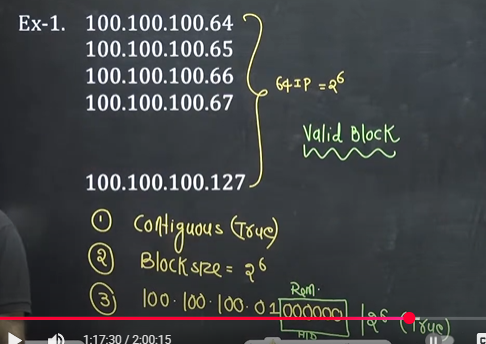 Ex-1. 100.100.100.64
100.100.100.65
100.100.100.66
100.100.100.67
100.100.100.127
64 IP = 2⁶
Valid Block
① Contiguous (True)
② Block size = 2⁶
③ 100.100.100.01000000 | 2⁶ (True)
Rem.
HID
1:17:30 / 2:00:15